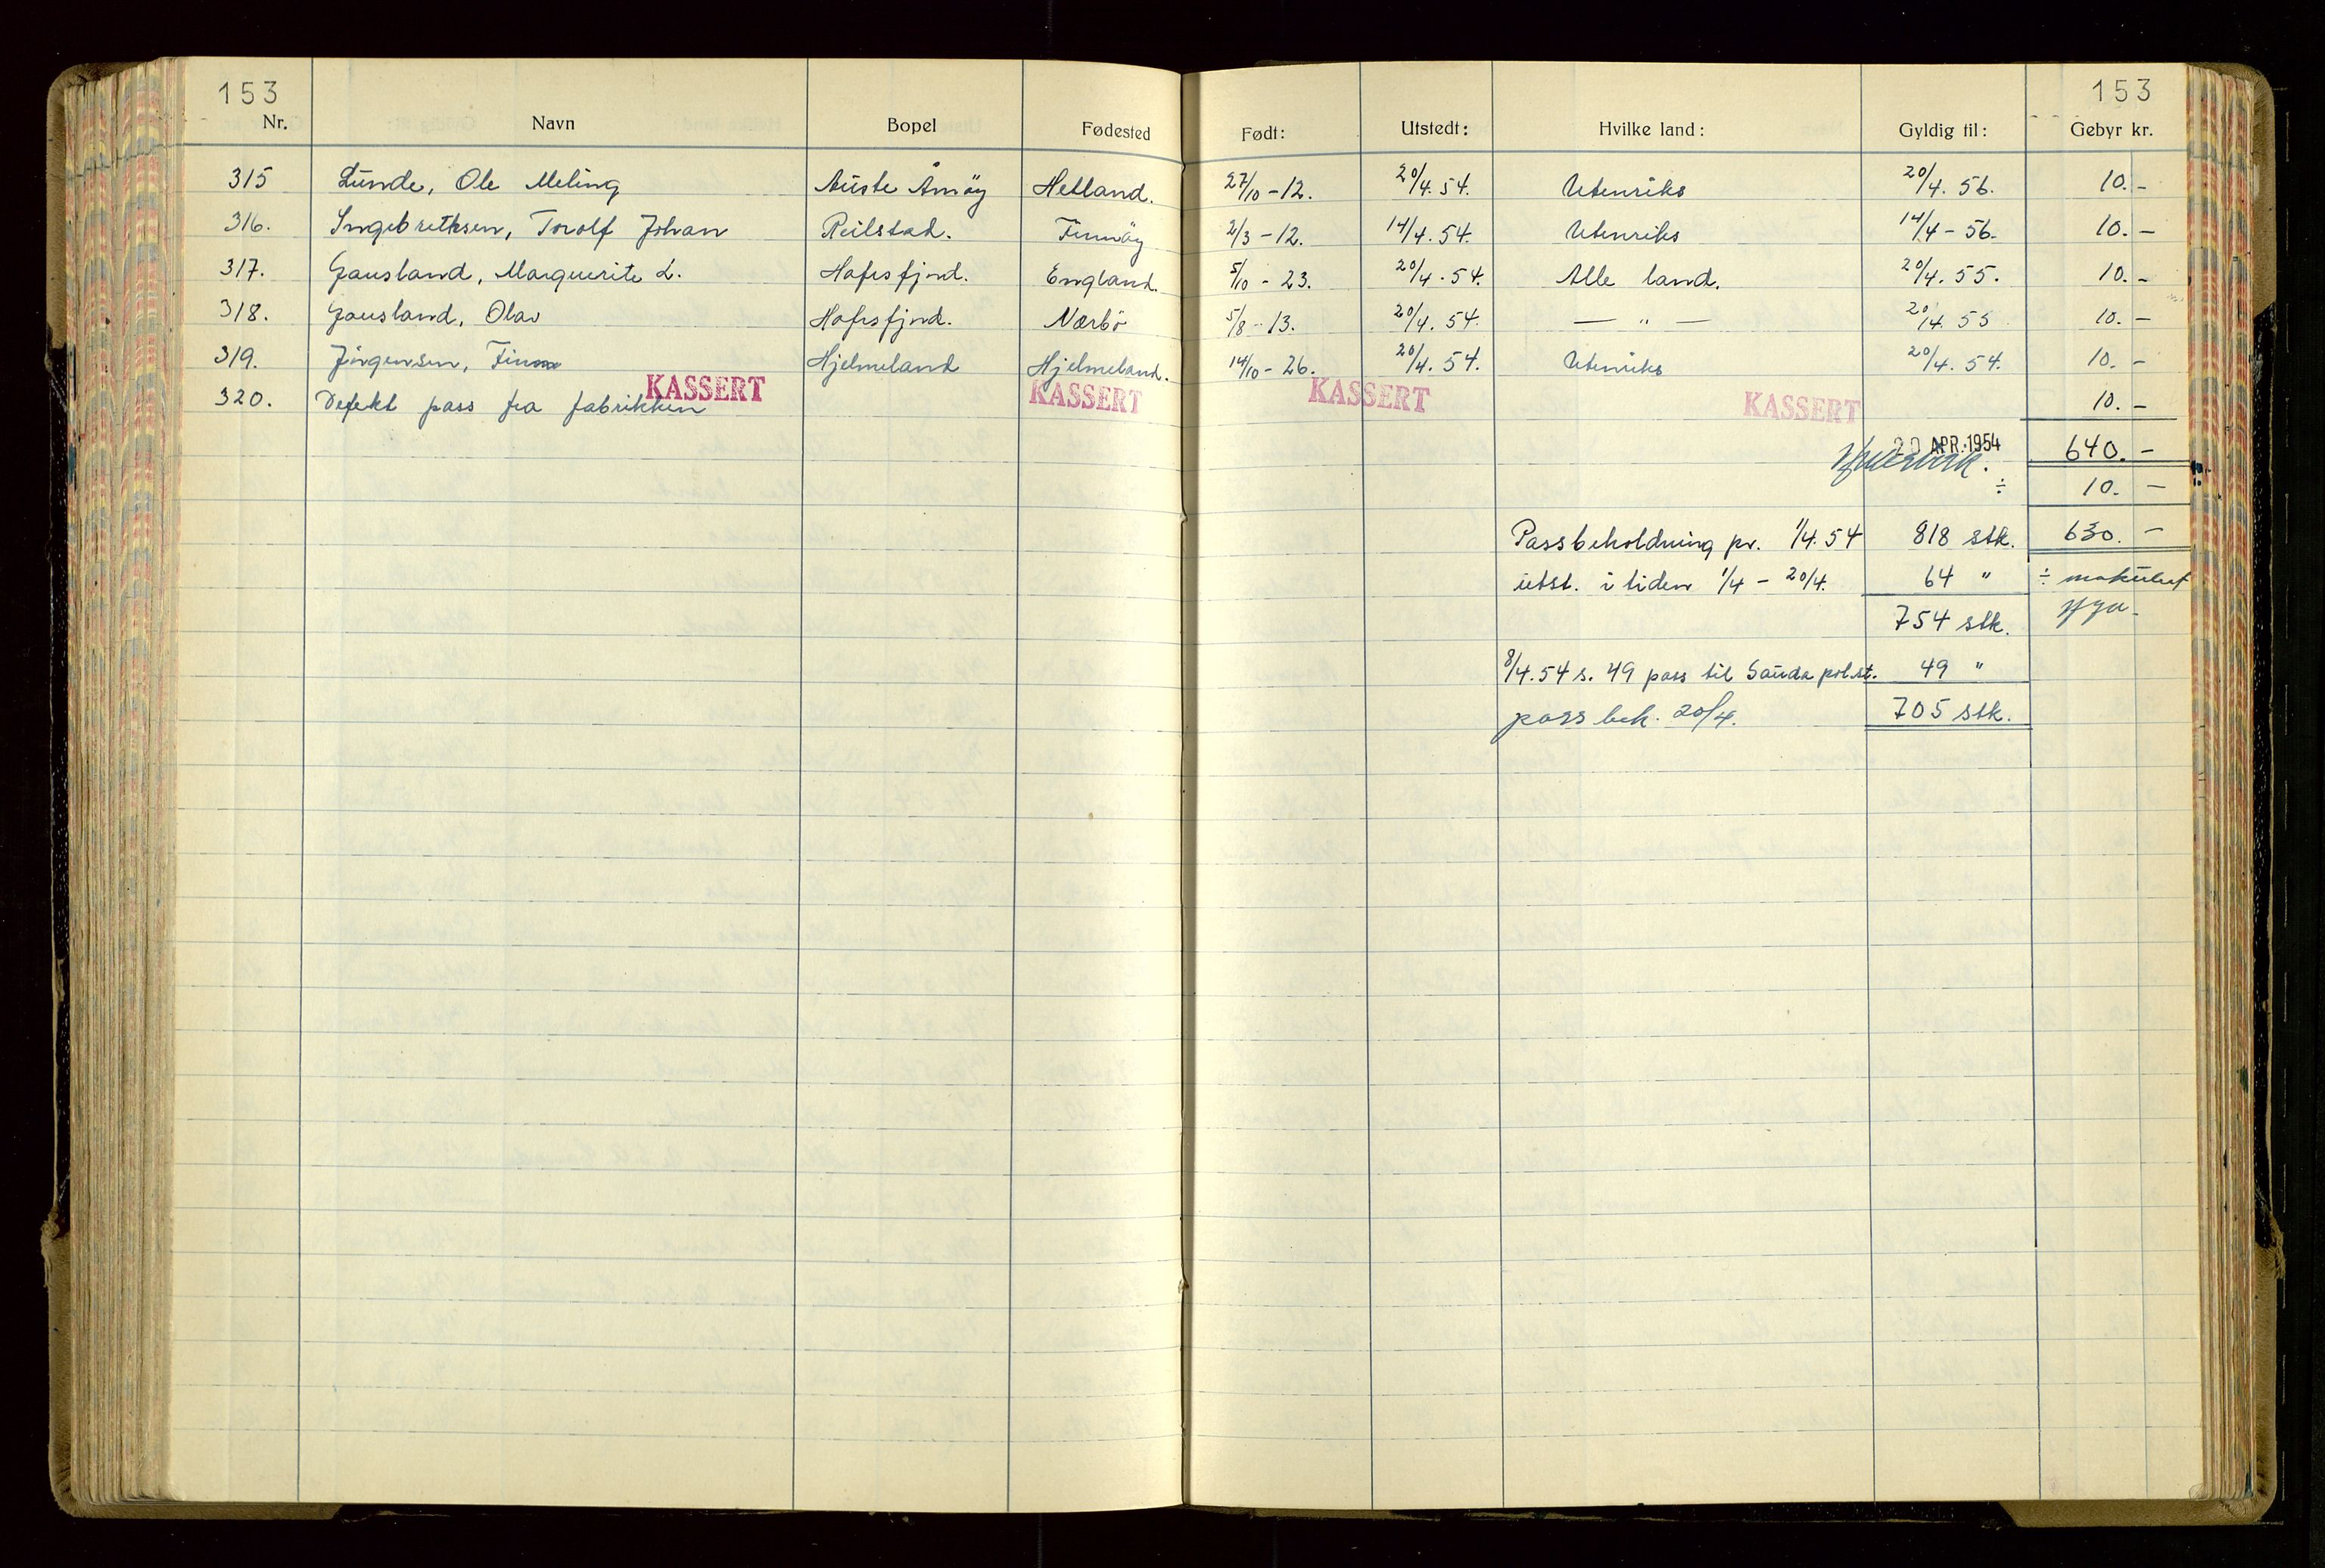 153 153
Nr. Navn Bopel Fødested Født: Utstedt: Hvilke land: Gyldig til: Gebyr kr.
315 Lunde, Ole Meling Auste Åmøy Hetland. 27/10 - 12. 20/4. 54. Utenriks 20/4. 56. 10. -
316. Ingebrethsen, Torolf Johan Reilstad. Finnøy 2/3 - 12. 14/4. 54. Utenriks 14/4 - 56. 10. -
317. Gausland, Marguerite L. Hafrsfjord. England. 5/10 - 23. 20/4. 54. Alle land. 20/4. 55. 10. -
318. Gausland, Olav Hafrsfjord. Nærbö 5/8 - 13. 20/4. 54. — " — 20/4. 55 10. -
319. Jörgensen, Finn Hjelmeland Hjelmeland. 14/10 - 26. 20/4. 54. Utenriks 20/4. 54. 10. -
320. Defekt pass fra fabrikken 10. -
KASSERT KASSERT KASSERT KASSERT
APR. 1954 640. -
÷ 10. -
Passbeholdning pr. 1/4. 54 818 stk. 630. -
utst. i tiden 1/4 - 20/4. 64 " ÷ makulert
754 stk.
8/4. 54 s. 49 pass til Sauda pol.st. 49 "
pass beh. 20/4. 705 stk.